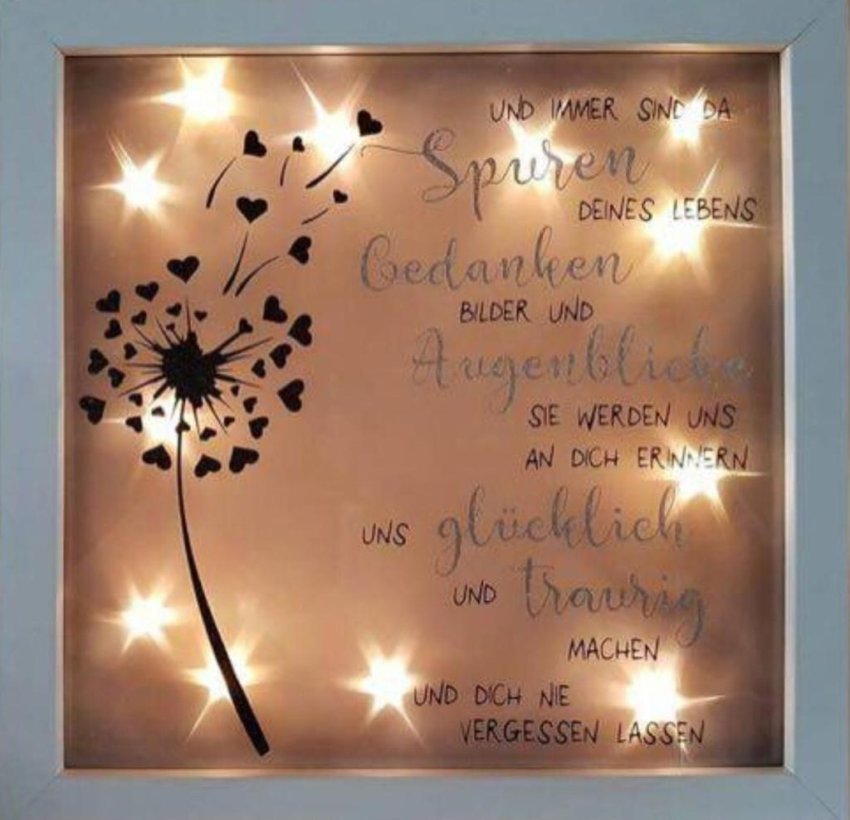 UND IMMER SIND DA
Spuren
DEINES LEBENS
Gedanken
BILDER UND
Augenblicke
SIE WERDEN UNS
AN DICH ERINNERN
UNS glücklich
UND traurig
MACHEN
UND DICH NIE
VERGESSEN LASSEN